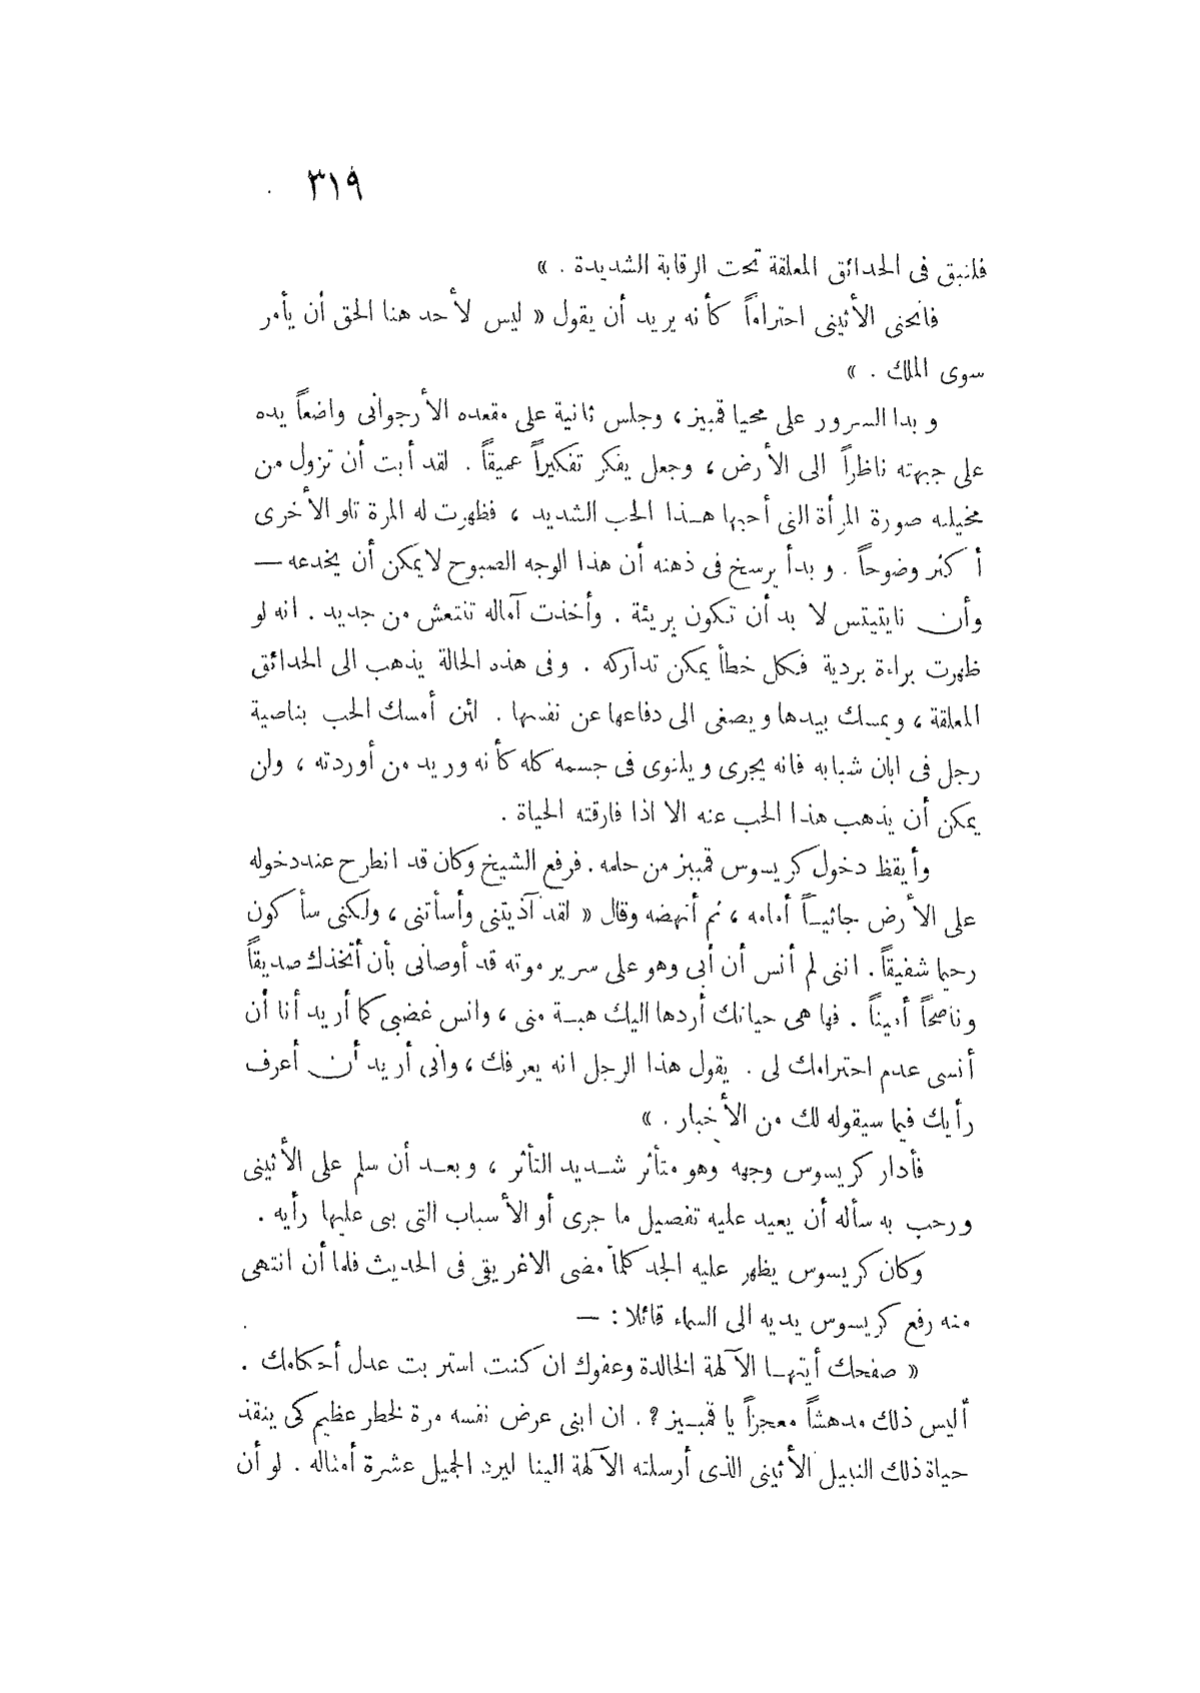 ٣١٩
فلنبق فى الحدائق المعلقة تحت الرقابة الشديدة . »
فانحنى الأثينى احتراماً كأنه يريد أن يقول « ليس لأحد هنا الحق أن يأمر
سوى الملك . »
وبدا السرور على محيا قمبيز ، وجلس ثانية على مقعده الأرجوانى واضعاً يده
على جبهته ناظراً الى الأرض ، وجعل يفكر تفكيراً عميقاً . لقد أبت أن تزول من
مخيلته صورة المرأة التى أحبها هذا الحب الشديد ، فظهرت له المرة تلو الأخرى
أكثر وضوحاً . وبدأ يرسخ فى ذهنه أن هذا الوجه الصبوح لا يمكن أن يخدعه —
وأن نايتيتس لا بد أن تكون بريئة . وأخذت آماله تنتعش من جديد . انه لو
ظهرت براءة بردية فكل خطأ يمكن تداركه . وفى هذه الحالة يذهب الى الحدائق
المعلقة ، ويمسك بيدها ويصغى الى دفاعها عن نفسها . لئن أمسك الحب بناصية
رجل فى ابان شبابه فانه يجرى ويلتوى فى جسمه كله كأنه وريد من أوردته ، ولن
يمكن أن يذهب هذا الحب عنه الا اذا فارقته الحياة .
وأيقظ دخول كريسوس قمبيز من حلمه . فرفع الشيخ وكان قد انطرح عند دخوله
على الأرض جاثيـاً أمامه ، ثم أنهضه وقال « لقد آذيتنى وأسأتنى ، ولكنى سأكون
رحيما شفيقاً . اننى لم أنس أن أبى وهو على سرير موته قد أوصانى بأن أتخذك صديقاً
وناصحاً أميناً . فها هى حياتك أردها اليك هبـة منى ، وانس غضبى كما أريد أنا أن
أنسى عدم احترامك لى . يقول هذا الرجل انه يعرفك ، وانى أريد أن أعرف
رأيك فيما سيقوله لك من الأخبار . »
فأدار كريسوس وجهه وهو متأثر شـديد التأثر ، وبعـد أن سلم على الأثينى
ورحب به سأله أن يعيد عليه تفصيل ما جرى أو الأسباب التى بنى عليها رأيه .
وكان كريسوس يظهر عليه الجد كلما مضى الاغريقى فى الحديث فلما أن انتهى
منه رفع كريسوس يديه الى السماء قائلا : —
« صفحك أيتهـا الآلهة الخالدة وعفوك ان كنت استربت عدل أحكامك .
أليس ذلك مدهشاً معجزاً يا قمبـيز ؟ . ان ابنى عرض نفسه مرة لخطر عظيم كى ينقذ
حياة ذلك النبيل الأثينى الذى أرسلته الآلهة الينا ليرد الجميل عشرة أمثاله . لو أن